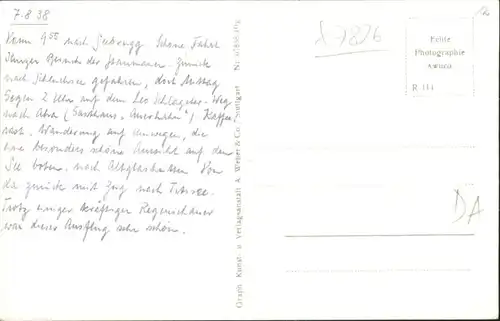 7-8 38
Vorm 9⁵⁵ nach Seebrugg Schöne Fahrt
zurück
nach Schluchsee gefahren, dort Mittag
Gegen 2 Uhr auf dem Leo Schlageter-Weg
nach Aha (Gasthaus "Auerhahn") Kaffee
rast. Wanderung auf Umwegen, die
eine besonders schöne Aussicht auf den
See boten, nach Altglashütten Von
da zurück mit Zug nach Titisee.
Trotz einiger kräftiger Regenschauer
war dieser Ausflug sehr schön.
Graph. Kunst- u. Verlagsanstalt A. Weber & Co. Stuttgart Nr.
7876
Echte
Photographie
R 111
DA